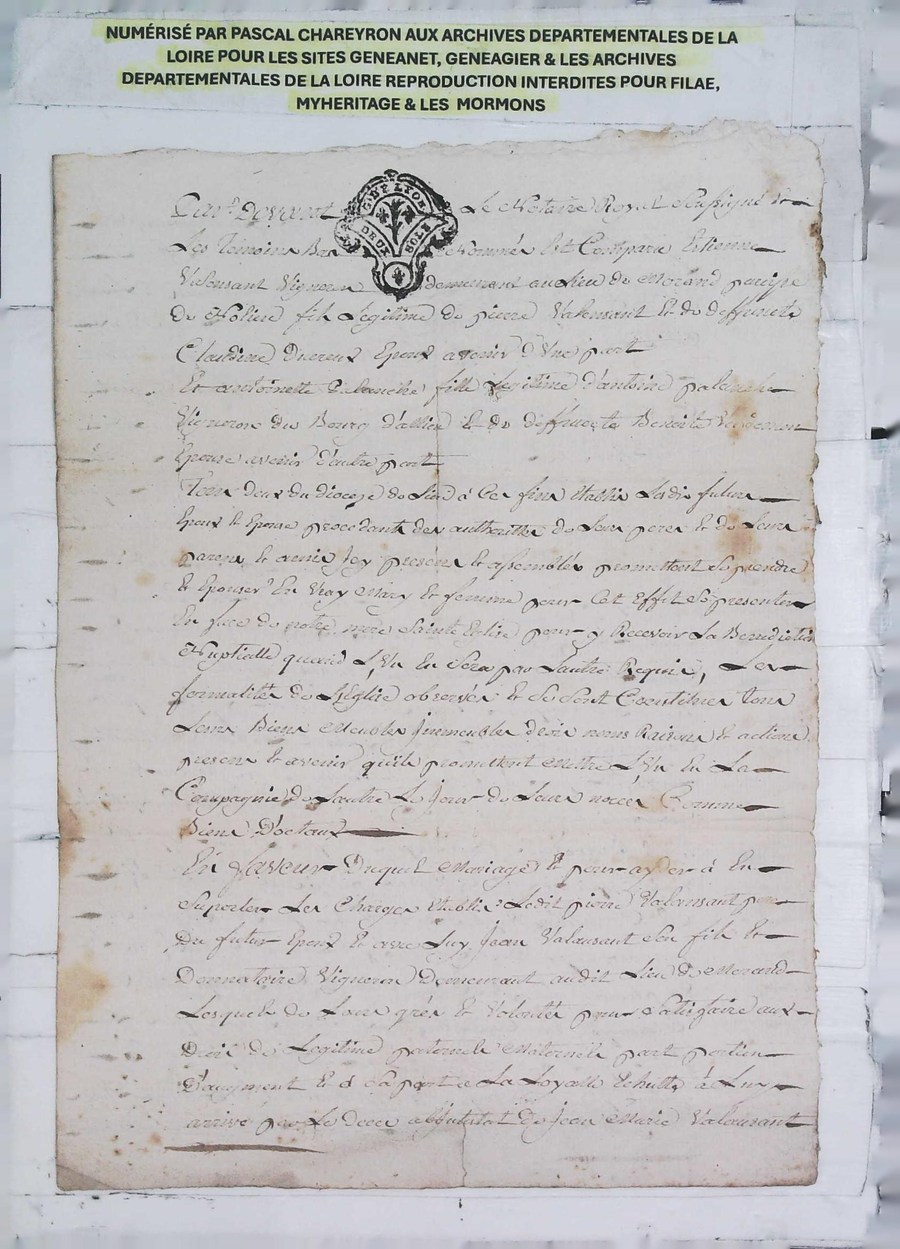 NUMÉRISÉ PAR PASCAL CHAREYRON AUX ARCHIVES DEPARTEMENTALES DE LA
LOIRE POUR LES SITES GENEANET, GENEAGIER & LES ARCHIVES
DEPARTEMENTALES DE LA LOIRE REPRODUCTION INTERDITES POUR FILAE,
MYHERITAGE & LES MORMONS
G. DE LYON
DEUX SOLS
Le Notaire Royal soussigné &
Les Temoins Bas Nommés Est Comparu Estienne
Valensant Vigneron demeurant au Lieu de Morand
de fils Legitime de pierre Valensant et de deffuncte
Claudine Ducreux Epoux avenir d'Une part
Et antoinette Palanche fille Legitime d'antoine palanche
Vigneron du Bourg d'allieu et de deffuncte Benoite
Epouse avenir d'autre part
Tous deux du diocese de à Ces fins établis Lesdis futurs
Epoux et Epouse procedants des authorités de Leurs peres et de Leurs
parens et amis Icy presens et assemblés promettent se prendre
et Epouser En Vray Mary et femme pour Cet Effet se presenter
En face de notre mere Sainte Eglise pour y Recevoir La Benediction
Nuptialle quand L'Un En sera par Lautre Requis, Les
formalités de L'Eglise observées et se sont Constitués tous
Leurs Biens Meubles Immeubles droits noms Raisons et actions
presens et avenir quils promettent Mettre L'Un En La
Compagnie de Lautre Le Jour de Leurs noces Comme
Biens
En faveur Duquel Mariage et pour ayder à En
Suporter Les Charges établis Ledit pierre Valansant pere
Du futur Epoux et avec Luy Jean Valansant son fils et
Donnataire Vigneron Demeurant audit Lieu de Morand
Lesquels de Leurs grés et Volontés pour Satisfaire aux
Droits de Legitime paternelle Maternelle part portion
D'augment et à sa part à La Loyalle Echutte à Luy
arrivé par Le deces abfintestat de Jean Marie Valansant